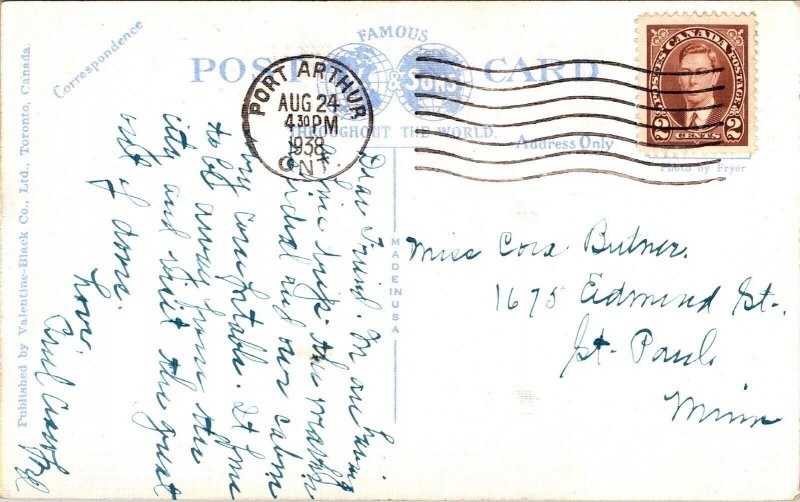 Correspondence
FAMOUS
POST CARD
& Sons
THROUGHOUT THE WORLD
Address Only
Photo by Fryer
PORT ARTHUR
AUG 24
4 30 PM
1938
ONT
CANADA POSTAGE
2 CENTS 2
Published by Valentine-Black Co., Ltd., Toronto, Canada.
MADE IN USA
Dear Friend. M are having
trip. the weather
ideal and our cabin
very comfortable. It fine
to be away from the
city and visit the great
out of doors.
Love.
Miss Cora Butner.
1675 Edmund St.,
St. Paul.
Minn